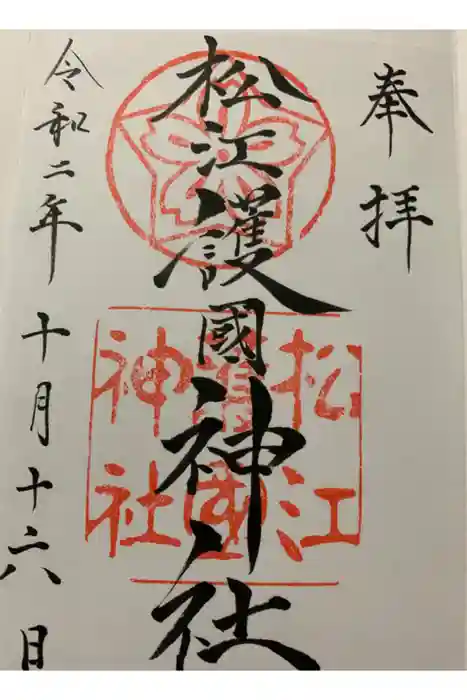 奉拝
松江護國神社
松江
護国
神社
令和二年 十月十六日